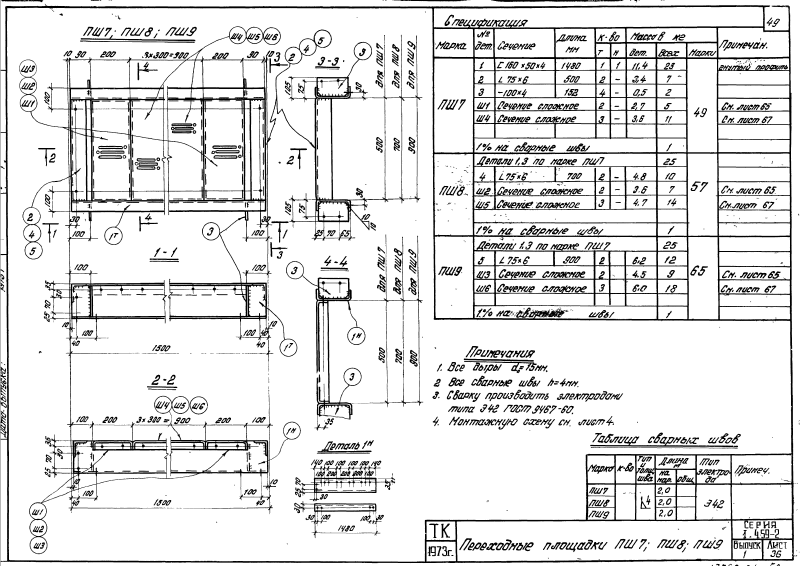 ПШ7; ПШ8; ПШ9
10 90 200 3×300=900 200 90 10
Ш4 Ш5 Ш6
Ш3
Ш2
Ш1
100
100
2
4
5
30
100
1Т
3
1-1
100 100
10 40 40 10
1500
1Т
2-2
Ш4 Ш5 Ш6
100 200 3×300=900 200 100
1Н
100 100
40 40
1500
Ш1
Ш2
Ш3
3-3
2 4 5
3
для ПШ7
для ПШ8
для ПШ9
105 75 30
500 700 900
25 70 65
4-4
3
1Н
для ПШ7
для ПШ8
для ПШ9
500 700 900
3
35
Деталь 1Н
140 100 200 200 100 140
30 100 100 30
1480
Спецификация
49
Марка № дет. Сечение Длина мм К-во Т Н Масса в кг дет. Всех Марки Примечан.
ПШ7
1 С 160×50×4 1480 1 1 11,4 23 гнутый профиль
2 L 75×6 500 2 - 3,4 7
3 -100×4 152 4 - 0,5 2
Ш1 Сечение сложное 2 - 2,7 5 См. лист 65
Ш4 Сечение сложное 3 - 3,6 11 См. лист 67
1% на сварные швы 1
49
ПШ8
Детали 1,3 по марке ПШ7 25
4 L 75×6 700 2 - 4.8 10
Ш2 Сечение сложное 2 - 3.6 7 См. лист 65
Ш5 Сечение сложное 3 - 4.7 14 См. лист 67
1% на сварные швы 1
57
ПШ9
Детали 1.3 по марке ПШ7 25
5 L 75×6 900 2 6.2 12
Ш3 Сечение сложное 2 - 4.5 9 См. лист 65
Ш6 Сечение сложное 3 6.0 18 См. лист 67
1% на сварные швы 1
65
Примечания
1. Все дыры d=15мм.
2 Все сварные швы h=4мм.
3. Сварку производить электродами
типа Э42 ГОСТ 9467-60.
4. Монтажную схему см. лист 4.
Таблица сварных швов
Марка К-во Тип и толщ шва Длина м на мар. общ. Тип электрода Примеч.
ПШ7 2.0
ПШ8 4 2.0 Э42
ПШ9 2.0
ТК
1973г.
Переходные площадки ПШ7; ПШ8; ПШ9
Серия
1.459-2
Выпуск 1
Лист 36